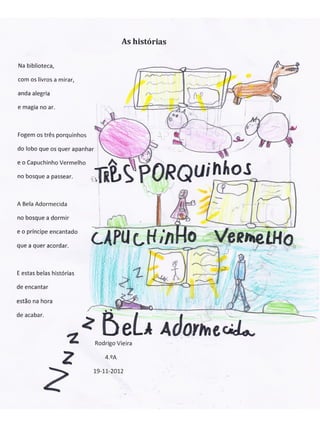 As histórias
Na biblioteca,
com os livros a mirar,
anda alegria
e magia no ar.
Fogem os três porquinhos
do lobo que os quer apanhar
e o Capuchinho Vermelho
no bosque a passear.
A Bela Adormecida
no bosque a dormir
e o príncipe encantado
que a quer acordar.
E estas belas histórias
de encantar
estão na hora
de acabar.
TRÊS PORQuinhos
CAPUCHinHO VERMELHO
Z
Z
BELA Adormecida
Z
Z
Z
Z
Rodrigo Vieira
4.ºA
19-11-2012